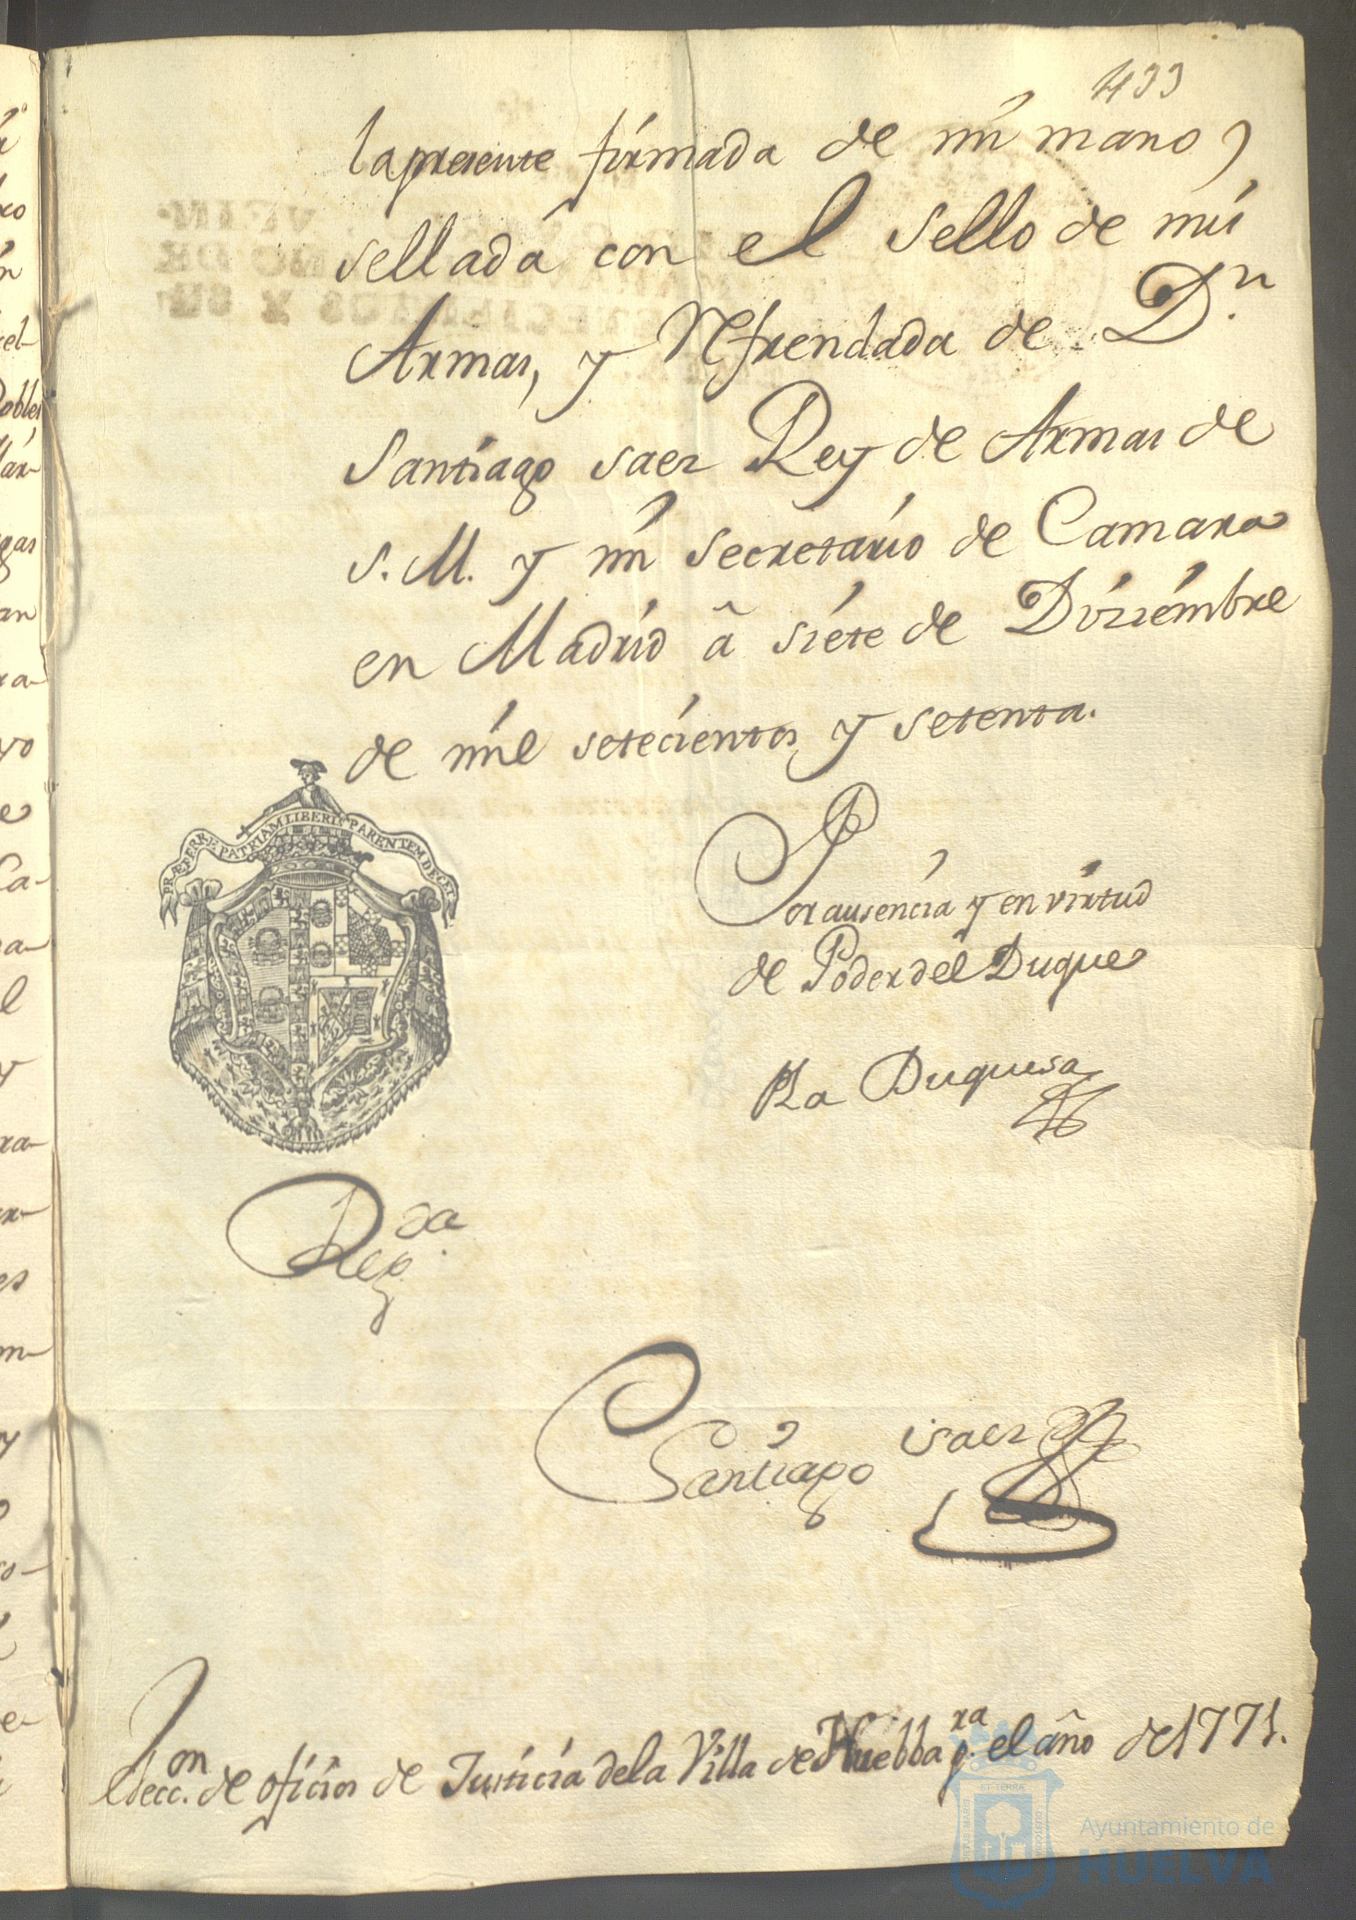 433
la presente firmada de mi mano,
sellada con el sello de mis
Armas, y Refrendada de Dn.
Santiago saez Rey de Armas de
S. M. y mi secretario de Camara
en Madrid â siete de Diziembre
de mil setecientos y setenta.
PRÆFERRE PATRIAM LIBERIS PARENTEM DECET
Por ausencia y en virtud
de Poder del Duque
La Duquesa
Regda.
Santiago saez
Elecc.on de oficios de Justicia dela Villa de Huelba pra. el año de 1771.
Ayuntamiento de
HUELVA